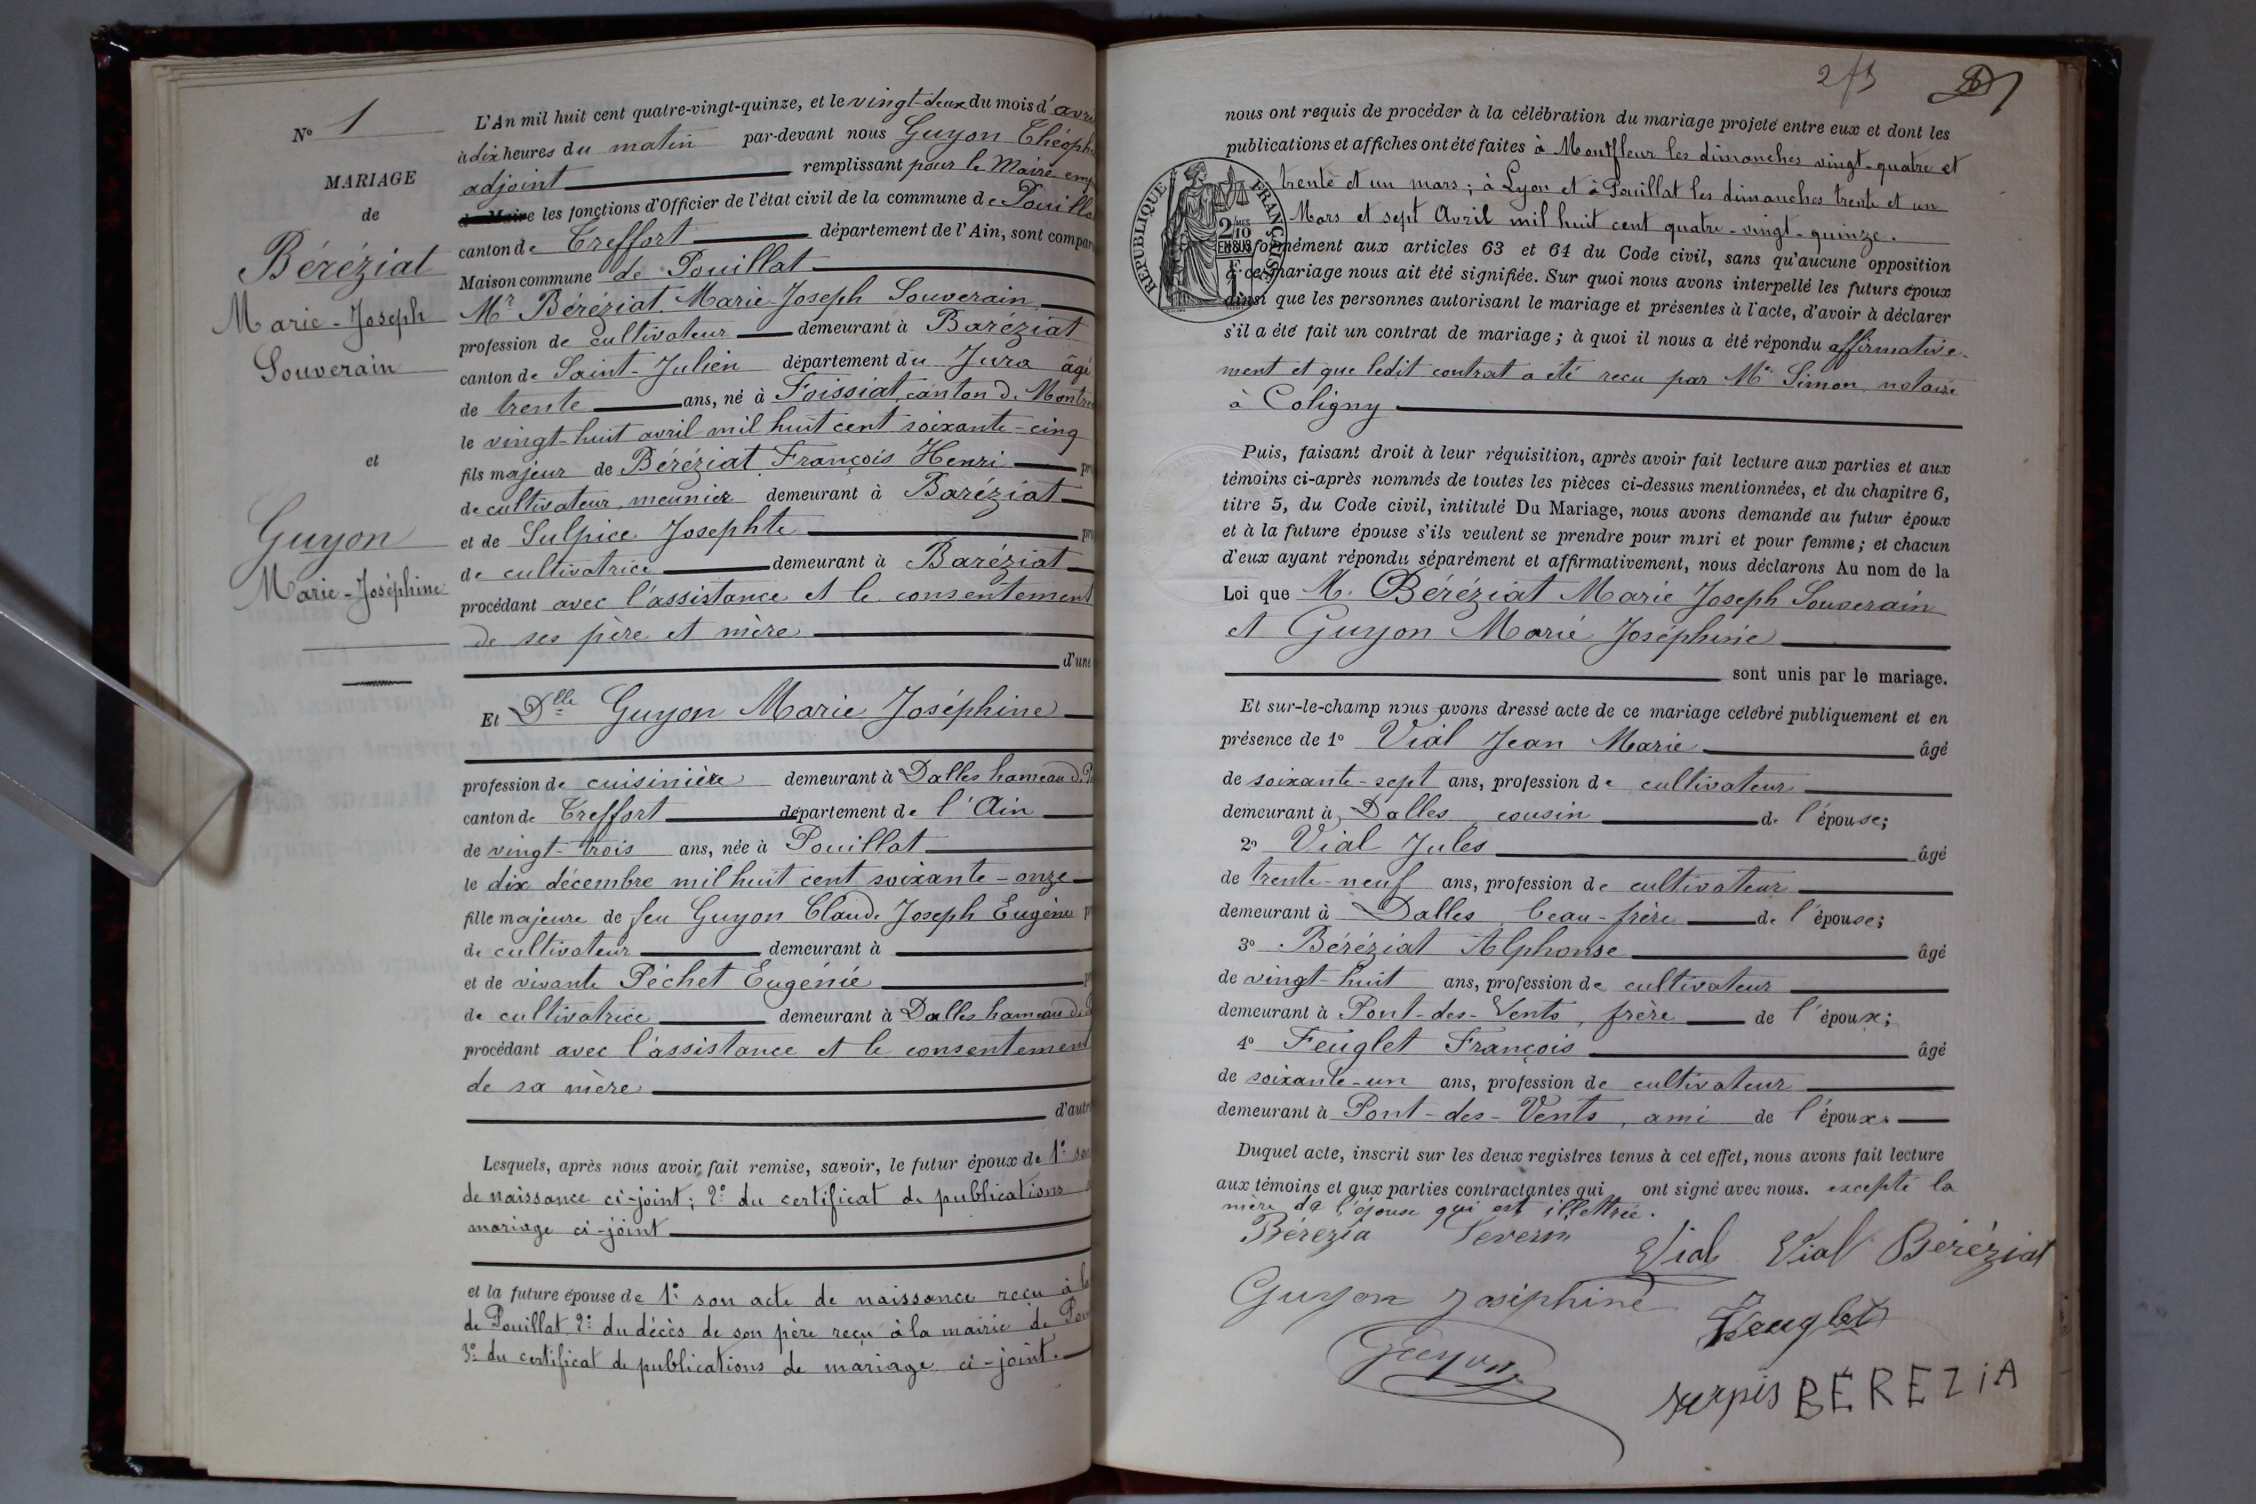 N° 1
MARIAGE
de
Béréziat
Marie-Joseph
Souverain
et
Guyon
Marie-Joséphine
L'An mil huit cent quatre-vingt-quinze, et le vingt-deux du mois d'avri
à dix heures du matin par-devant nous Guyon Théoph
adjoint remplissant pour le Maire emp
de Maire les fonctions d'Officier de l'état civil de la commune de Pouilla
canton de Treffort département de l'Ain, sont compar
Maison commune de Pouillat
Mr Béréziat Marie-Joseph Souverain
profession de cultivateur demeurant à Baréziat
canton de Saint-Julien département du Jura âgé
de trente ans, né à Foissiat, canton de Montre
le vingt-huit avril mil huit cent soixante-cinq
fils majeur de Béréziat François Henri pr
de cultivateur meunier demeurant à Baréziat
et de Sulpice Josephte pr
de cultivatrice demeurant à Baréziat
procédant avec l'assistance et le consentement
de ses père et mère
d'une
Et Dlle Guyon Marie Joséphine
profession de cuisinière demeurant à Dalles hameau de P
canton de Treffort département de l'Ain
de vingt-trois ans, née à Pouillat
le dix décembre mil huit cent soixante-onze
fille majeure de feu Guyon Claude Joseph Eugène p
de cultivateur demeurant à
et de vivante Péchet Eugénie p
de cultivatrice demeurant à Dalles hameau de
procédant avec l'assistance et le consentement
de sa mère
d'autre
Lesquels, après nous avoir fait remise, savoir, le futur époux de 1° son
de naissance ci-joint; 2° du certificat de publications
mariage ci-joint
et la future épouse de 1° son acte de naissance reçu à la
de Pouillat 2° du décès de son père reçu à la mairie de Pou
3° du certificat de publications de mariage ci-joint.
2/5
nous ont requis de procéder à la célébration du mariage projeté entre eux et dont les
publications et affiches ont été faites à Montfleur les dimanches vingt-quatre et
trente et un mars; à Lyon et à Pouillat les dimanches trente et un
Mars et sept Avril mil huit cent quatre-vingt-quinze.
RÉPUBLIQUE FRANÇAISE
2/10 EN SUS
conformément aux articles 63 et 64 du Code civil, sans qu'aucune opposition
à ce mariage nous ait été signifiée. Sur quoi nous avons interpellé les futurs époux
ainsi que les personnes autorisant le mariage et présentes à l'acte, d'avoir à déclarer
s'il a été fait un contrat de mariage; à quoi il nous a été répondu affirmative-
ment et que ledit contrat a été reçu par Me Simon notaire
à Coligny
Puis, faisant droit à leur réquisition, après avoir fait lecture aux parties et aux
témoins ci-après nommés de toutes les pièces ci-dessus mentionnées, et du chapitre 6,
titre 5, du Code civil, intitulé Du Mariage, nous avons demandé au futur époux
et à la future épouse s'ils veulent se prendre pour mari et pour femme; et chacun
d'eux ayant répondu séparément et affirmativement, nous déclarons Au nom de la
Loi que M. Béréziat Marie Joseph Souverain
et Guyon Marie Joséphine
sont unis par le mariage.
Et sur-le-champ nous avons dressé acte de ce mariage célébré publiquement et en
présence de 1° Vial Jean Marie âgé
de soixante-sept ans, profession de cultivateur
demeurant à Dalles, cousin de l'épouse;
2° Vial Jules âgé
de trente-neuf ans, profession de cultivateur
demeurant à Dalles, beau-frère de l'épouse;
3° Béréziat Alphonse âgé
de vingt-huit ans, profession de cultivateur
demeurant à Pont-des-Vents, frère de l'époux;
4° Feuglet François âgé
de soixante-un ans, profession de cultivateur
demeurant à Pont-des-Vents, ami de l'époux.
Duquel acte, inscrit sur les deux registres tenus à cet effet, nous avons fait lecture
aux témoins et aux parties contractantes qui ont signé avec nous. excepté la
mère de l'épouse qui est illettrée.
Bérezia Severin Vial Vial Béréziat
Guyon Joséphine Feuglet
Guyon
surpis BÉREZIA